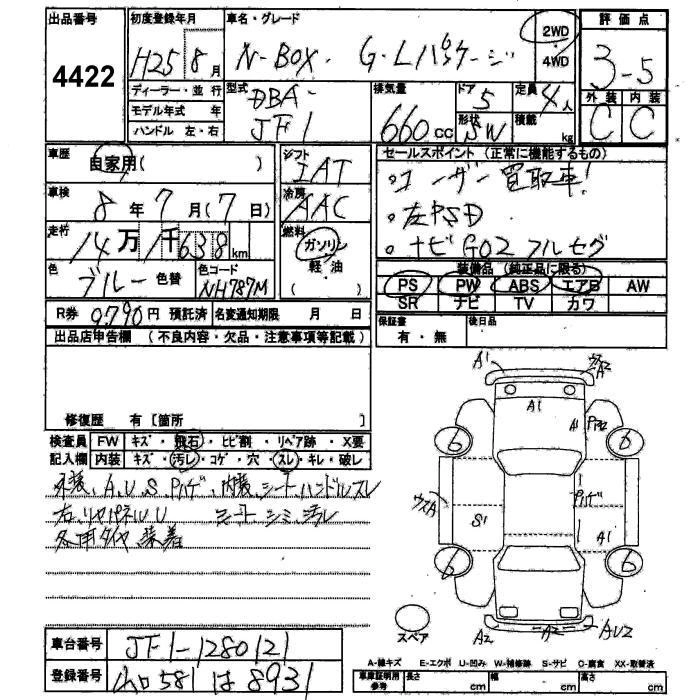 出品番号 初度登録年月 車名・グレード 評価点
4422 H25 8月 N-BOX・G・Lパッケージ 2WD・4WD 3-5
ディーラー・並行 型式 排気量 ドア 定員 外装 内装
モデル年式 年 DBA- 660cc 5 4人 C C
ハンドル 左・右 JF1 形状 SW 積載 kg
車歴 自家用( ) シフト IAT セールスポイント(正常に機能するもの)
車検 8年7月(7日) 冷房 AAC 。ユーザー買取車!
走行 14万1千638km 燃料 ガソリン 。左PSD
軽・油 。ナビG02フルセグ
色 ブルー 色替 色コード NH787M ( ) 装備品(純正品に限る)
PS PW ABS エアB AW
R券 9790円 預託済 名変通知期限 月 日 SR ナビ TV カワ
出品店申告欄(不良内容・欠品・注意事項等記載) 保証書 有・無 後日品
修復歴 有[箇所 ]
検査員 FW キズ・飛石・ヒビ割・リペア跡・X要
記入欄 内装 キズ・汚レ・コゲ・穴・スレ・キレ・破レ
外装、A、U、S、Pハゲ、内装、シート、ハンドルスレ
右、リヤパネルU シートシミ、汚レ
冬用タイヤ装着
A1 ウスA2
A1 A1
6 6
ウスA S1 Pハゲ
A1
6 6
スペア A2 A2 AU2
A-線キズ E-エクボ U-凹み W-補修跡 S-サビ C-腐食 XX-取替済
車台番号 JF1-1280121
登録番号 581 は 8931
車庫証明用参考 長さ cm 幅 cm 高さ cm